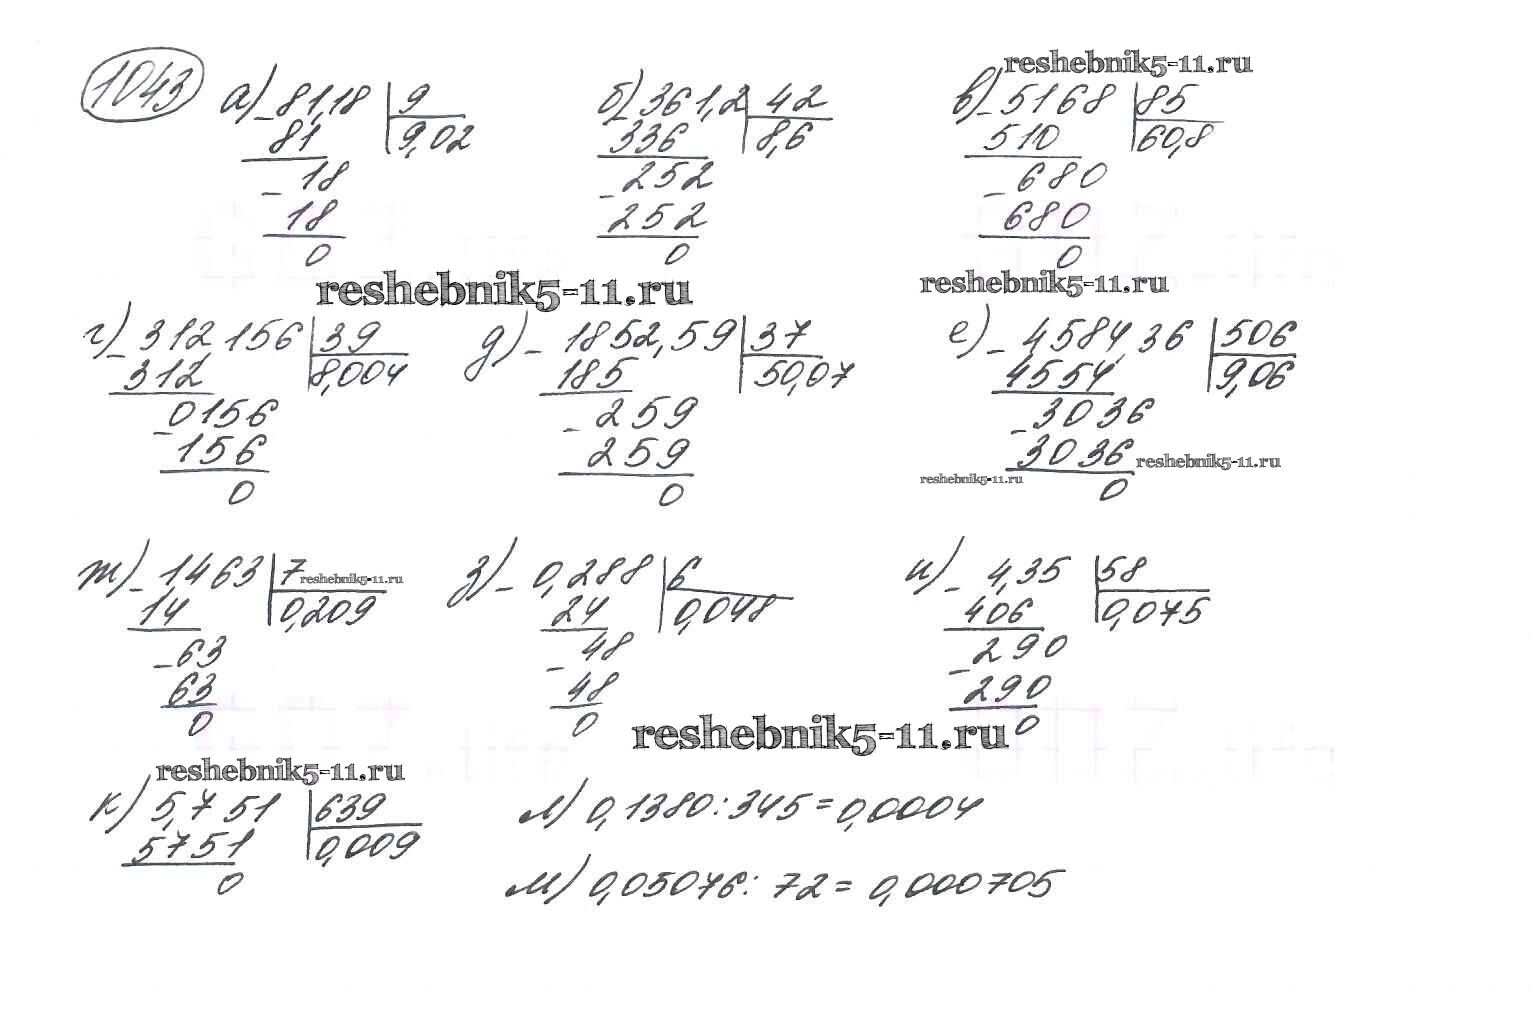 reshebnik5-11.ru
1043 а) 81,18 9 б) 361,2 42 в) 5168 85
81 9,02 336 8,6 510 60,8
- 18 - 252 - 680
18 252 680
0 0 0
reshebnik5-11.ru reshebnik5-11.ru
г) - 312 156 39 д) - 1852,59 37 е) - 4584,36 506
312 8,004 185 50,07 4554 9,06
- 0156 - 259 - 3036
156 259 3036 reshebnik5-11.ru
reshebnik5-11.ru
0 0 0
ж) - 1463 7 reshebnik5-11.ru з) - 0,288 6 и) - 4,35 58
14 0,209 24 0,048 406 0,075
- 63 - 48 - 290
63 48 290
0 0 reshebnik5-11.ru 0
reshebnik5-11.ru
к) 5,751 639 л) 0,1380:345=0,0004
5751 0,009
0 м) 0,05076: 72= 0,000705